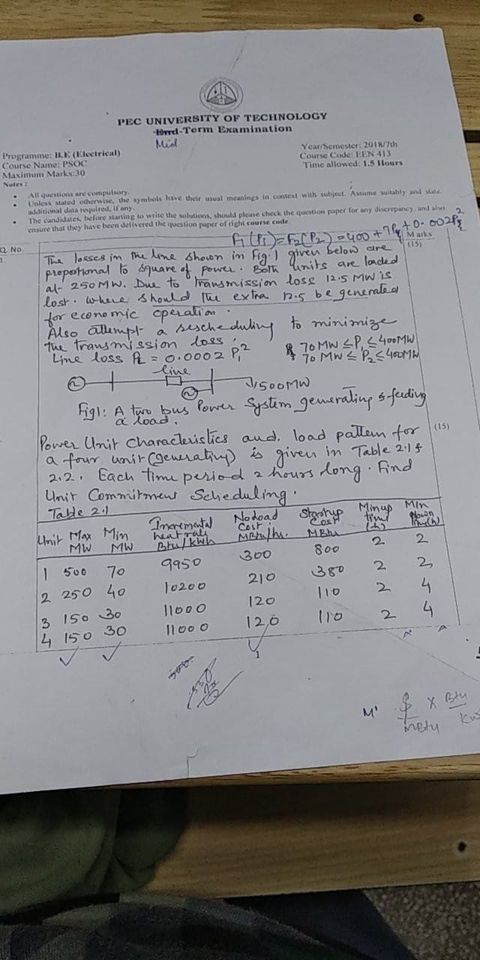 PEC UNIVERSITY OF TECHNOLOGY
End-Term Examination
Mid
Programme: B.E (Electrical)
Year/Semester: 2018/7th
Course Name: PSOC
Course Code: EEN 413
Maximum Marks:30
Time allowed: 1.5 Hours
Notes :
All questions are compulsory.
Unless stated otherwise, the symbols have their usual meanings in context with subject. Assume suitably and state
additional data required, if any.
The candidates, before starting to write the solutions, should please check the question paper for any discrepancy, and also
ensure that they have been delivered the question paper of right course code.
F1(P1) = F2(P2) = 400 + 7Pg + 0.002Pg²
Q. No.
Marks
The losses in the line shown in Fig.1 given below are
(15)
proportional to square of power. Both units are loaded
at 250 MW. Due to transmission loss 12.5 MW is
lost. where should the extra 12.5 be generated
for economic operation.
Also attempt a rescheduling to minimize
the transmission loss.
70 MW ≤ P1 ≤ 400MW
Line loss PL = 0.0002 P1²
70 MW ≤ P2 ≤ 400MW
line
500MW
Fig1: A two bus Power System generating & feeding
a load.
Power Unit Characteristics and load pattern for
(15)
a four unit (generating) is given in Table 2.1 &
2.2. Each time period 2 hours long. Find
Unit Commitment Scheduling.
Table 2.1
Unit Max MW Min MW Incremental heat rate Btu/kWh No load Cost MBtu/hr. Startup Cost MBtu Min up time (h) Min down time (h)
1 500 70 9950 300 800 2 2
2 250 40 10200 210 380 2 2
3 150 30 11000 120 110 2 4
4 150 30 11000 120 110 2 4
M' $/MBtu × Btu